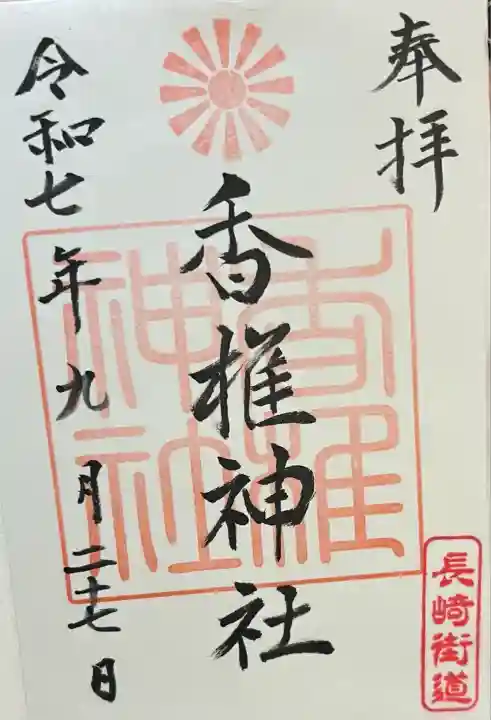 奉拝
香椎神社
香椎神社
令和七年九月二十七日
長崎街道